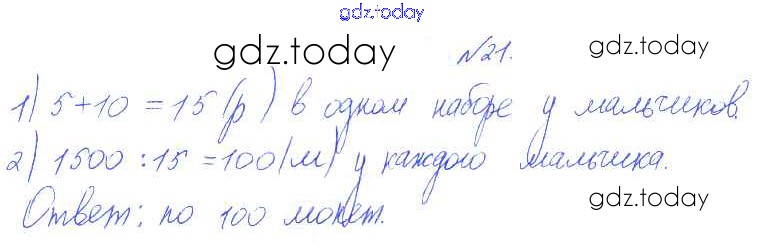 gdz.today
gdz.today №21.
1) 5+10=15(р) в одном наборе у мальчиков.
2) 1500:15=100(м) у каждого мальчика.
gdz.today
Ответ: по 100 монет.
gdz.today